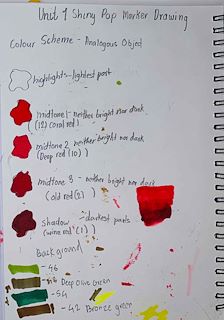 Unit 1 Shiny Pop Marker Drawing
Colour Scheme - Analogous Object
highlights - lightest part
midtone 1 - neither bright nor dark
(12) coral red)
midtone 2 neither bright nor dark
(Deep red (10))
midtone 3 - neither bright nor dark
(old red (2)
Shadow - darkest parts
(wine red (1))
Background
- 46
Deep Olive Green
- 54
- 42 Bronze green